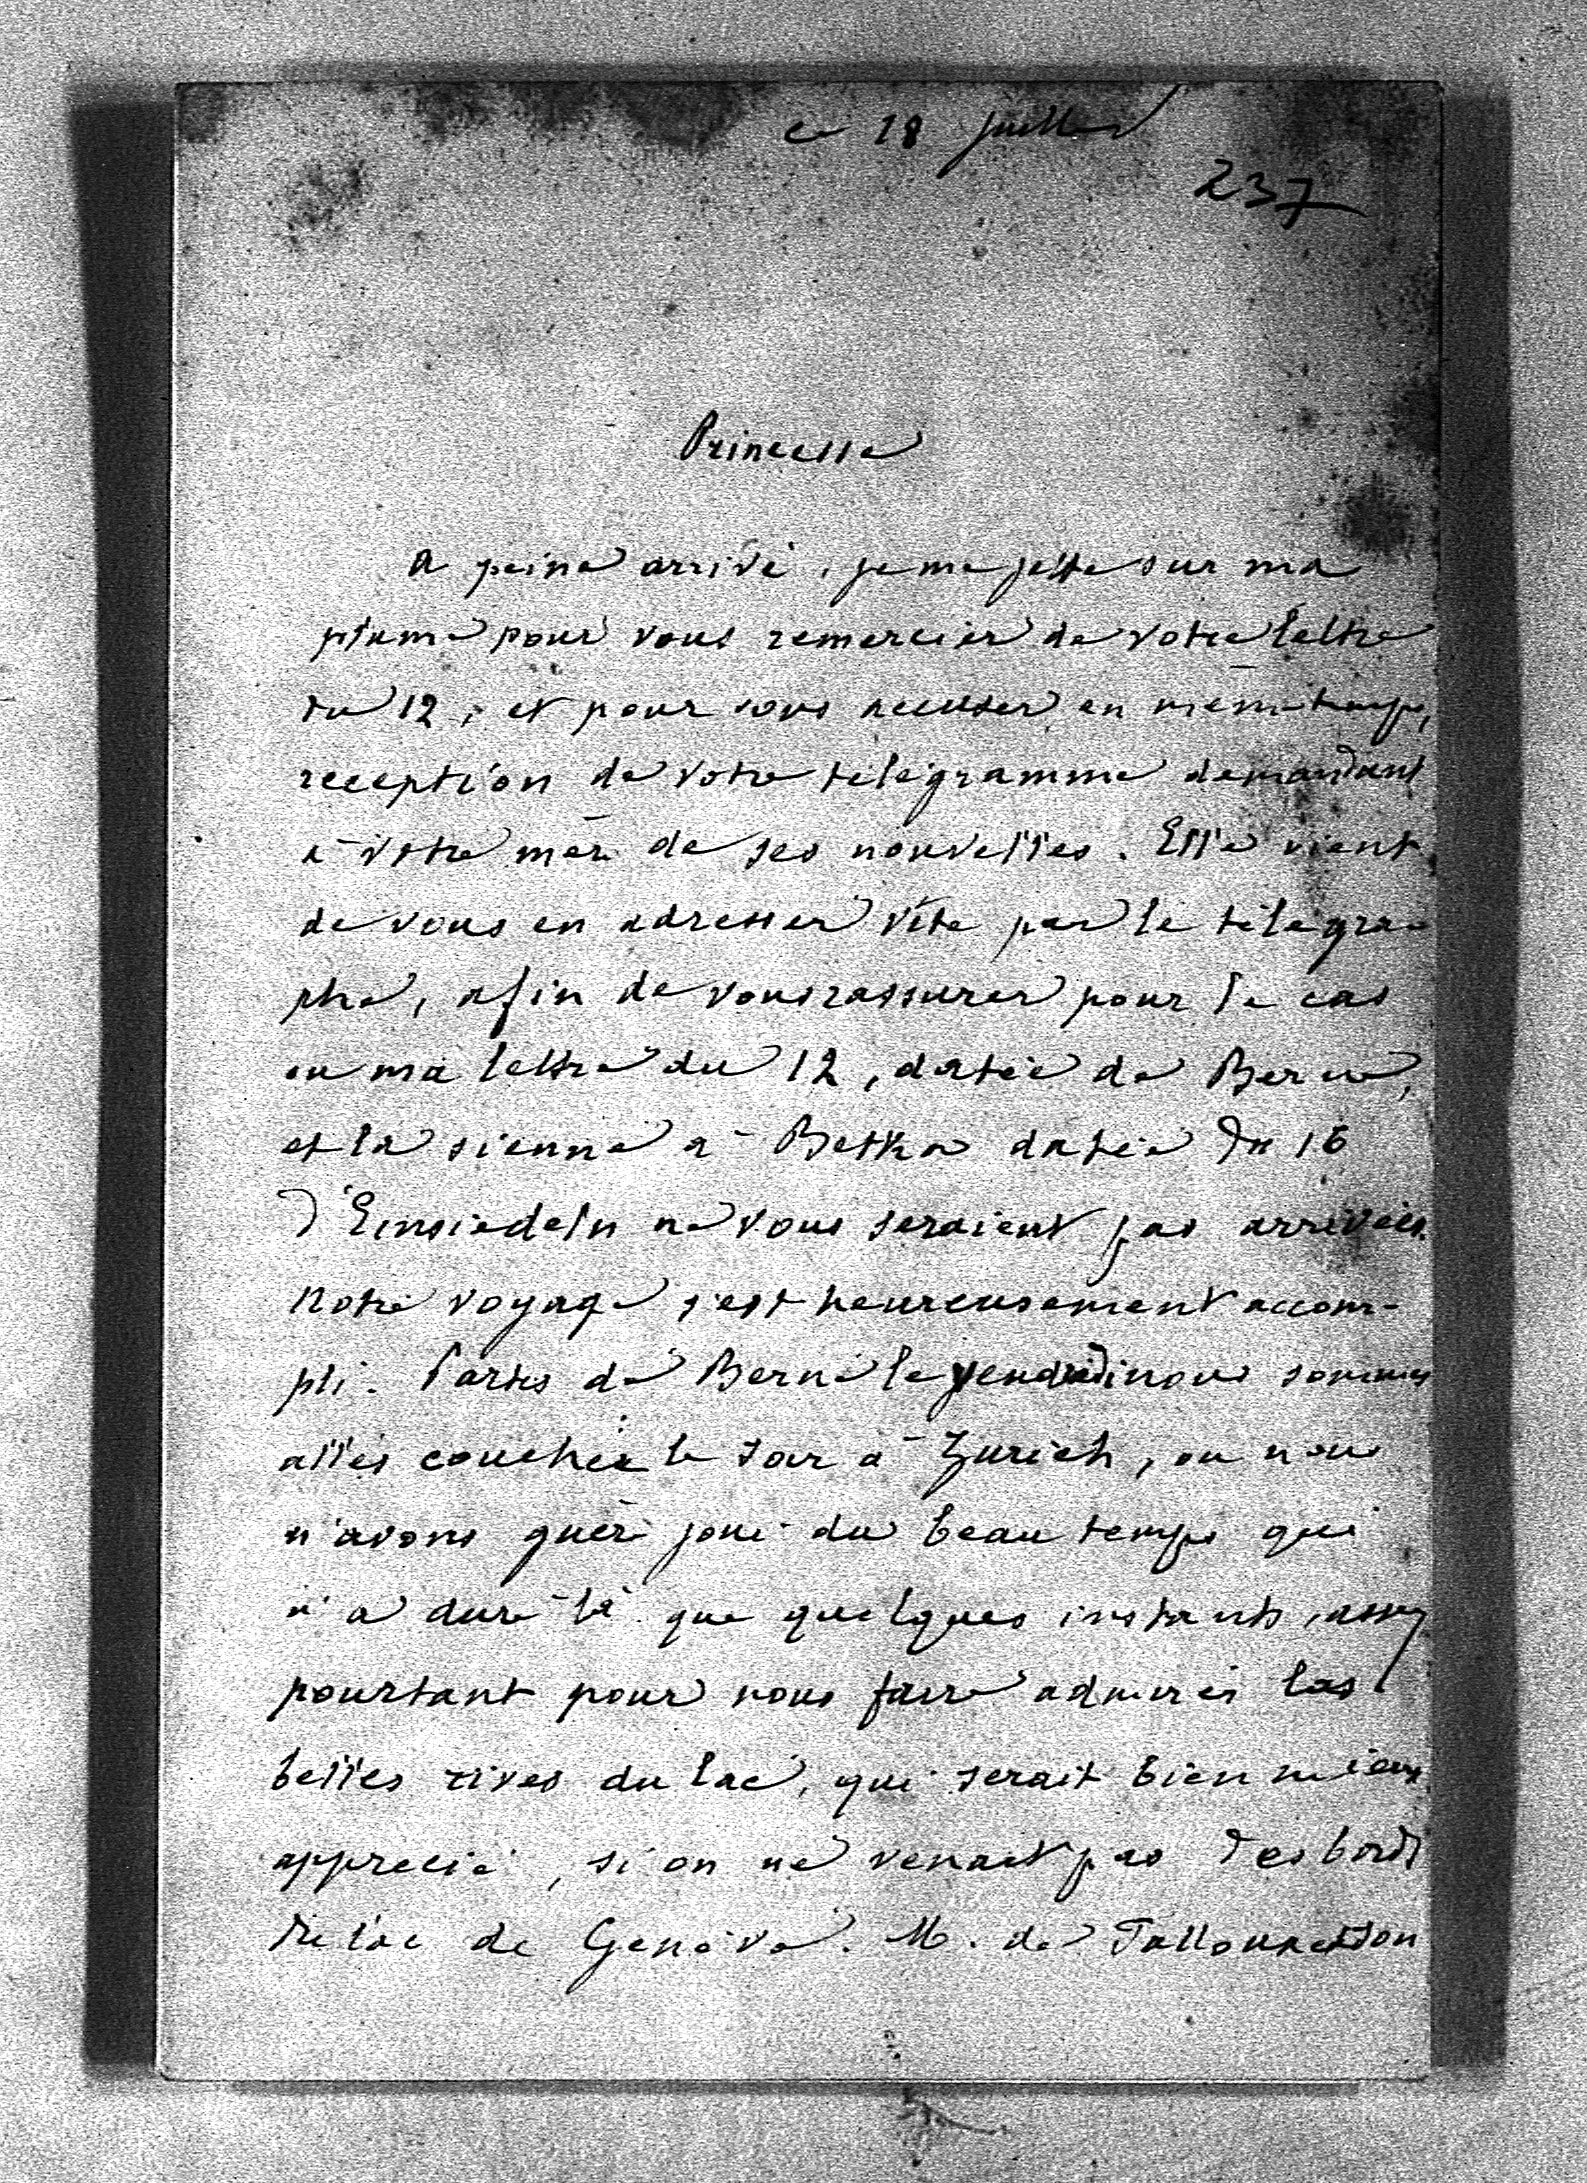 ce 18 juillet
237
Princesse
A peine arrivé, je me jette sur ma
plume pour vous remercier de votre lettre
du 12, et pour vous accuser en même temps,
reception de votre télégramme demandant
à votre mère de ses nouvelles. Elle vient
de vous en adresser vite par le télégra-
phe, afin de vous rassurer pour le cas
ou ma lettre du 12, datée de Berne,
et la sienne à Betka datée du 16
d'Einsiedeln ne vous seraient pas arrivées.
Notre voyage s'est heureusement accom-
pli. Partis de Berne le vendredi nous sommes
allés coucher le soir à Zurich, ou nous
n'avons guère joui du beau temps qui
n'a duré là que quelques instants, assez
pourtant pour nous faire admirer les
belles rives du lac, qui serait bien mieux
apprecié, si on ne venait pas des bords
du lac de Genève. M. de